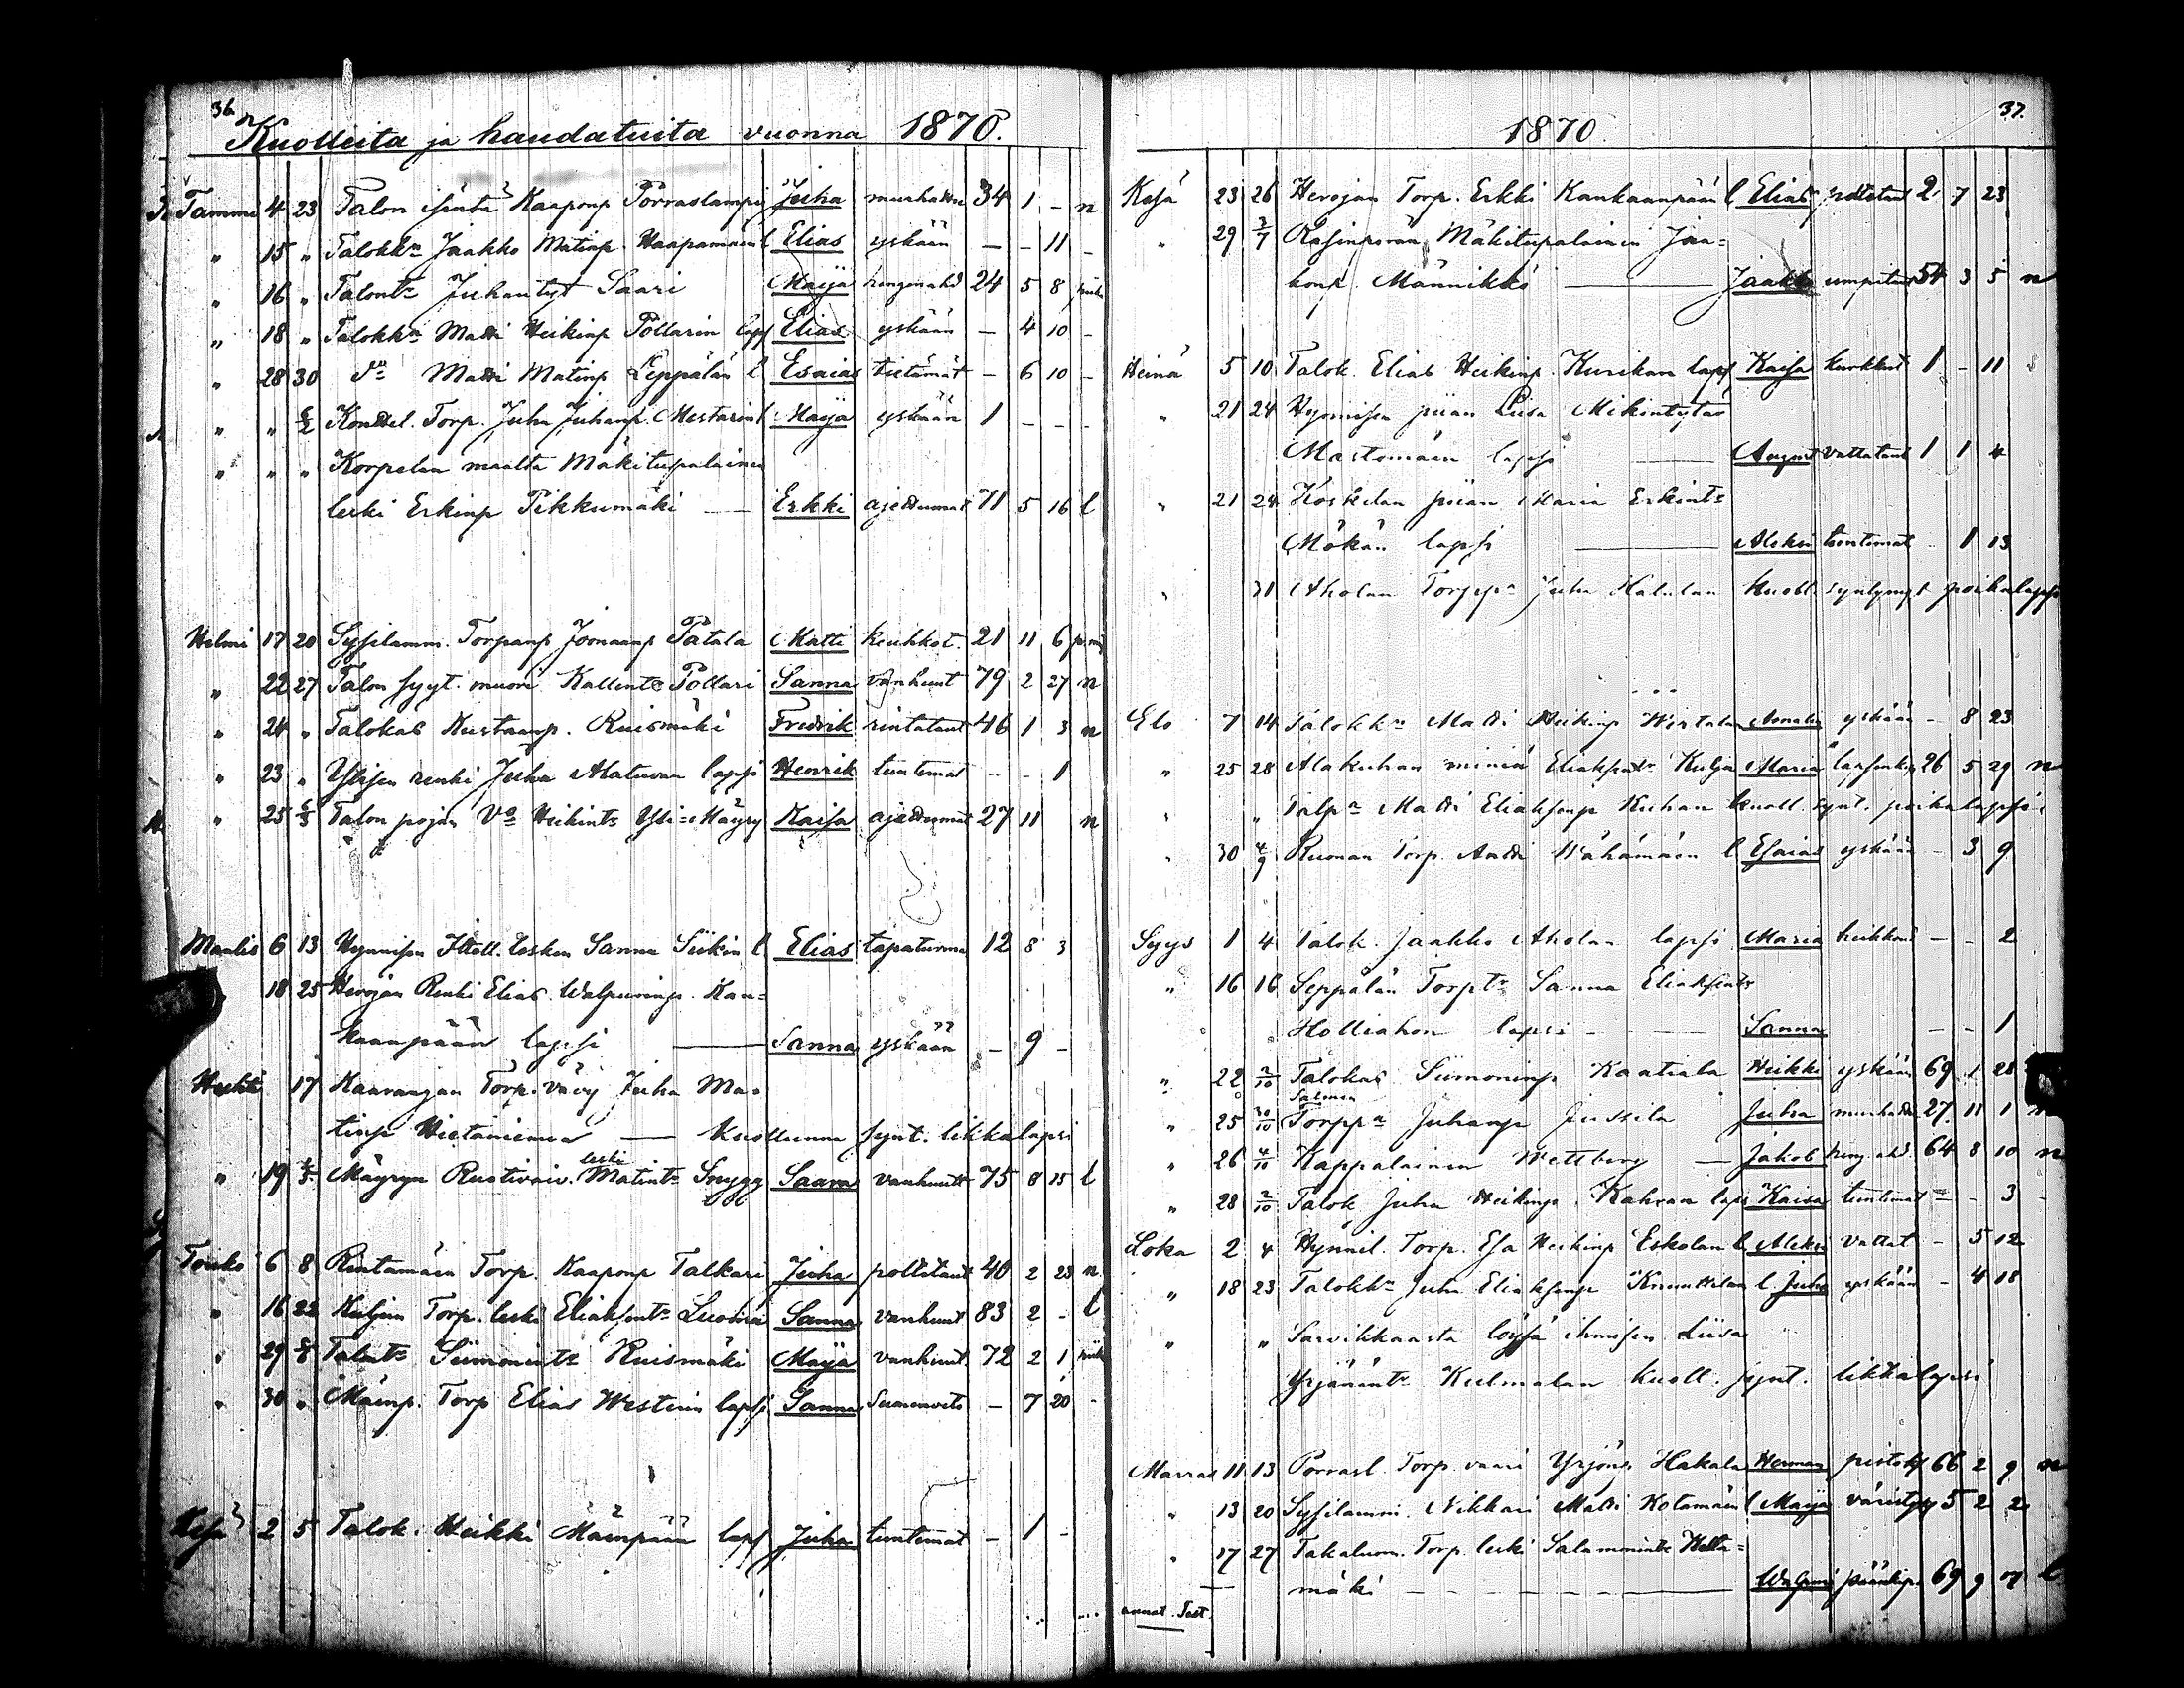 36
Kuolleita ja haudatuita vuonna 1870.
Tammi 4 23 Talon isäntä Kaaponp Porraslampi Juha murhattu 34 1 - n
" 15 " Talokkn Jaakko Matinp. Haapamäen l Elias yskään - - 11 -
" 16 " Talontr Juhantyt Saari Maija hengenahd 24 5 8
" 18 " Talokkn Matti Heikinp Pollarin laps Elias yskään - 4 10 -
" 28 30 dn Matti Matinp Leppälän l Esaias tietämät - 6 10 -
" " 6/2 Torp. Juha Juhanp. Mestarin l Maija yskään 1 - - -
" " " Korpelan maalta Mäkitupalainen
leski Erkinp Pikkumäki — Erkki ajettumat 71 5 16 l
Helmi 17 20 Sysilamm. Torpanp Joonaanp Tatala Matti keuhkot. 21 11 6
" 22 27 Talon syyt. muori Kallentr Pollari Sanna vanhuut 79 2 27 n
" 24 " Talokas Kustaanp. Ruismäki Fredrik rintataut 46 1 3 n
" 23 " renki Juha Alatuvan lapsi Henrik tuntemat - - 1
" 25 6/3 Talon pojan Vo Heikintr Yli-Mäyry Kaisa ajettumat 27 11 n
Maalis 6 13 Hynnisen Itsell. lesken Sanna Siikin l Elias tapaturma 12 8 3
18 25 Herojan Renki Elias Walpurinp. Kan=
kaanpään lapsi — Sanna yskään - 9 -
Huhti 17 Kaavangan Torp. vävy Juha Ma=
tinp Hietaniemen — Kuolleena synt. likkalapsi
" 19 Mäyryn Rustivaiv. leski Matintr Snygg Saara vanhuutt 75 8 15 l
Touko 6 8 Rintamäen Torp. Kaaponp Talkari Juha polttotaut 40 2 23 n
" 16 22 Kuljun Torp. leski Eliaksentr Luoma Sanna vanhuut 83 2 - l
" 29 Talontr Siimonintr Ruismäki Maija vanhuut. 72 2 1
" 30 " Mäenp. Torp Elias Westerin lapsi Sanna Suonenveto - 7 20 -
Kesä 2 5 Talok. Heikki Mäenpään laps Juha tuntemat - 1 -
37.
1870
Kesä 23 26 Herojan Torp. Erkki Kankaanpään l Elias polttotaut 2 7 23
" 29 3/7 Mäkitupalainen Jaa=
konp. Männikkö — Jaakko umpitaut 54 3 5 n
Heinä 5 10 Talok. Elias Heikinp. Kurikan laps Kaisa kurkkut 1 - 11
" 21 24 Hynnisen piian Liisa Mikintytär
Mastomäen lapsi — August vattataut 1 1 4
" 21 24 Koskelan piian Maria Erkintr
Mökän lapsi — Aleksi tuntemat - 1 13
" 31 Aholan Torppn Juha Hakulan kuoll. syntynyt poikalapsi
Elo 7 14 Talokkn Matti Heikinp Wirtalan Amalia yskään - 8 23
" 25 28 Alakuhan miniä Eliaksentr Kulja Maria lapsenk. 26 5 29 n
" " Talpn Matti Eliaksenp Kuhan kuoll. synt. poikalapsi
" 30 4/9 Ruonan Torp. Antti Wähämäen l Esaias yskään - 3 9
Syys 1 4 Talok. Jaakko Aholan lapsi Maria heikkous - - 2
" 16 16 Seppälän Torptr Sanna Eliaksentr
Holliahon lapsi - — Sanna - - 1
" 22 2/10 Talokas Siimoninp Kaatiala Heikki yskään 69 1 28
" 25 30/10 Salmen Torppn Juhanp Jussila Juha murhatt 27 11 1 n
" 26 4/10 Kappalainen Wettberg — Jakob heng. ahd 64 8 10 n
" 28 2/10 Talok Juha Heikinp. Kahvan laps Kaisa tuntemat - - 3 -
Loka 2 4 Hynnil. Torp. Esa Heikinp Eskolan l Aleksi vattat - 5 12
" 18 23 Talokkn Juha Eliaksenp Knuuttilan l Juho yskään - 4 18
" " Sarvikkaasta löysä ihmisen Liisa
Yrjänäntr Kulmalan kuoll. synt. likkalapsi
Marras 11 13 Porrasl. Torp. vaari Yrjönp Hakala Herman pistoks 66 2 9 n
" 13 20 Sysilammi. Nikkari Matti Kotamäen l Maija 5 2 2
" 17 27 Takaluom. Torp. leski Salamonintr Kelta=
mäki — — — Walpuri 69 9 7 l
annat. Test.